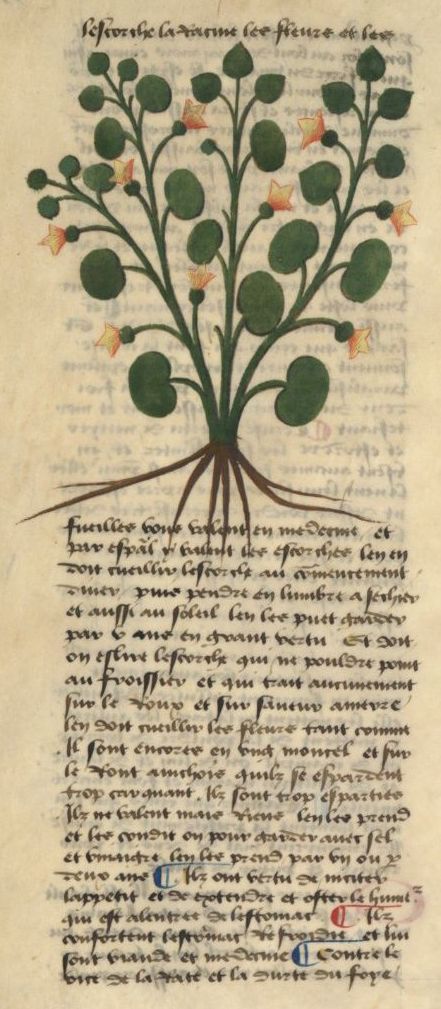 lescorche la racine les fleurs et les
fueilles tous valent en medecine / et
par esp̃al y valent les escorches len en
doit cueillir lescorche au cõmencement
diuer / puis pendre en lumbre a sechier
et aussi au soleil len les puet garder
par v ans en grant vertu Et doit
on eslire lescorche qui ne pouldre point
au froissier et qui trait aucunement
sur le roux et sur saueur amere
len doit cueillir les fleurs tant comme
Ilz sont encores en vng moncel et sur
le ront ainchois quilz se espardent
trop car quant Ilz sont trop esparties
Ilz ne valent mais riens len les prend
et les condit on pour garder auec sel
et vinaigre len les prend par vn ou p
deux ans ¶ Ilz ont vertu de inciter
lappetit et de extendre et oster le humeʳ
qui est alentree de lestomac ¶ Ilz
confortent lestomac refroidie et lui
sont viande et medecine ¶ Contre le
vice de la rate et la durte du foye